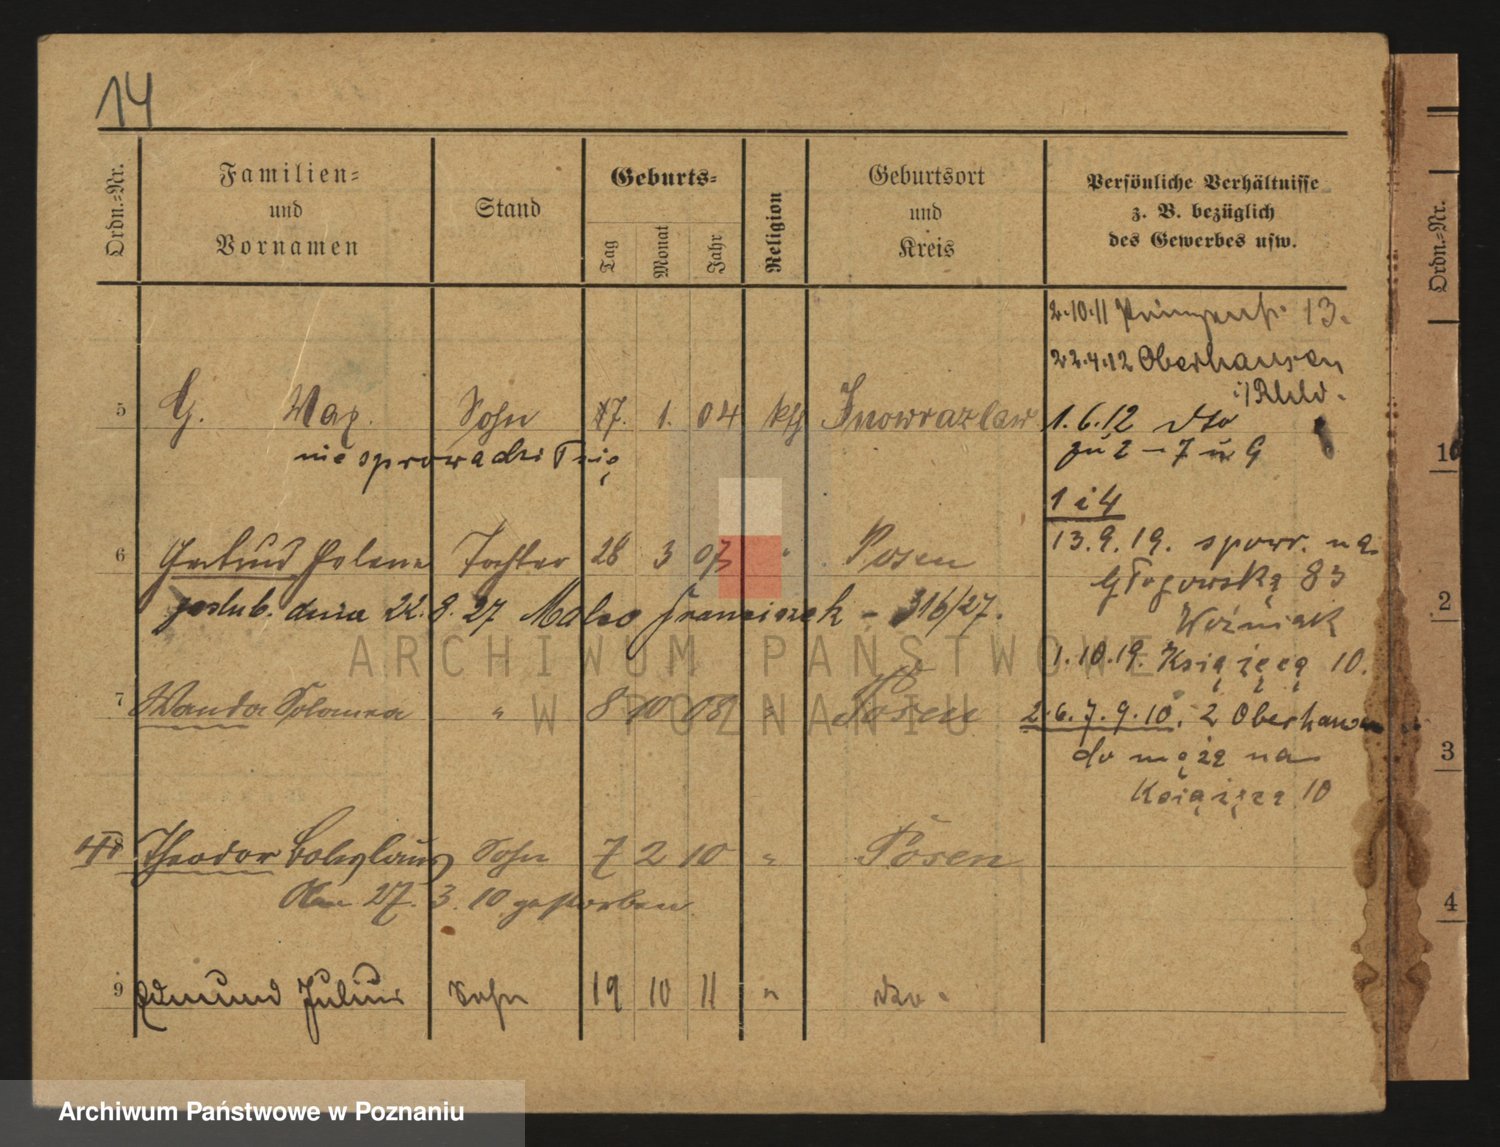 14
Ordn.-Nr.
Familien-
und
Vornamen
Stand
Geburts-
Tag
Monat
Jahr
Religion
Geburtsort
und
Kreis
Persönliche Verhältnisse
z. B. bezüglich
des Gewerbes usw.
Ordn.-Nr.
2.10.11 13.
22.4.12 Oberhausen
i/Rhld.
5 G. Max. Sohn 17. 1. 04 kth Inowrazlaw
1.6.12 dto
nie sprowadził się
zu 2 - 7 u 9
1 i 4
6 Gertrud Helene Tochter 28 3 07 " Posen
13.9.19. sprow. na
Głogowską 83
Woźniak
poślub. dnia 22.8.27 Franciszek - 316/27.
1.10.19. Książęcą 10.
7 Wanda " 8 10 08 " Posen
2.6.7.9.10. z Oberhausen
do męża na
Książęcą 10
8 Theodor Boleslaus Sohn 7 2 10 " Posen
Am 27. 3. 10 gestorben
9 Edmund Julius Sohn 19 10 11 " dto.
10
2
3
4
ARCHIWUM PAŃSTWOWE
W POZNANIU
Archiwum Państwowe w Poznaniu